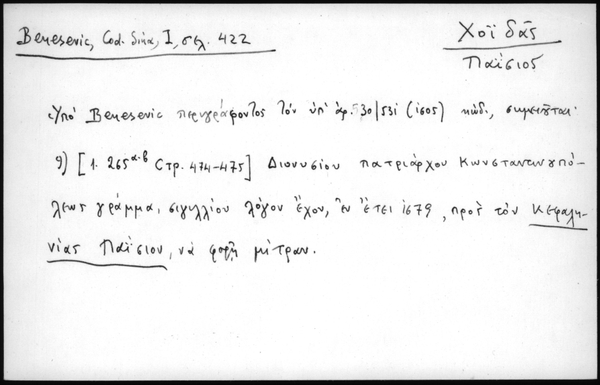 Benesevic, Cod. Sina, I, σελ. 422
Χοϊδᾶς
Παΐσιος
Ὑπὸ Benesevic περιγράφοντος τὸν ὑπ' ἀρ. 530/531 (1505) κώδ., σημειοῦται·
9) [1. 265α-β Стр. 474-475] Διονυσίου πατριάρχου Κωνσταντινουπό-
λεως γράμμα, σιγιλλίου λόγον ἔχον, ἐν ἔτει 1679, πρὸς τὸν Κεφαλη-
νίας Παΐσιον, νὰ φορῇ μίτραν.